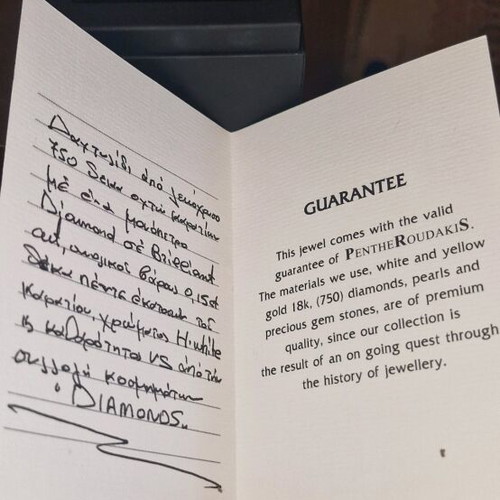 Δαχτυλίδι από λευκόχρυσο
750 δέκα οχτώ καρατίων
με ένα μονόπετρο
Diamond σε Brilliant
cut, συνολικού βάρους 0,15ct
δέκα πέντε εκατοστά του
καρατίου, χρώματος H.white
καθαρότητος VS από την
συλλογή κοσμημάτων
DIAMONDS.
GUARANTEE
This jewel comes with the valid
guarantee of PENTHEROUDAKIS.
The materials we use, white and yellow
gold 18k, (750) diamonds, pearls and
precious gem stones, are of premium
quality, since our collection is
the result of an on going quest through
the history of jewellery.